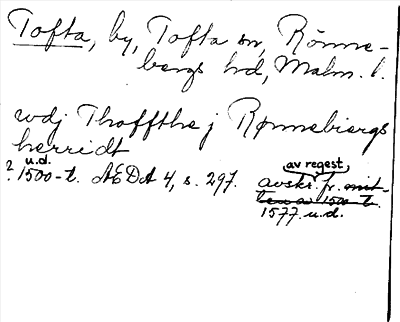 Tofta, by, Tofta sn, Rönne-
bergs hd, Malm. l.
wdj Thoffthe j Rønnebiergs
herridt
u.d. av regest
? 1500-t. ÆDA 4, s. 297. avskr. fr. mit-
ten av 1500-t.
1577. u.d.